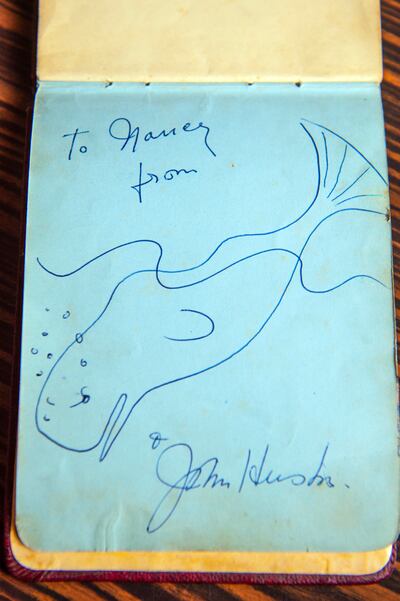 To Nancy
from
& John Huston.